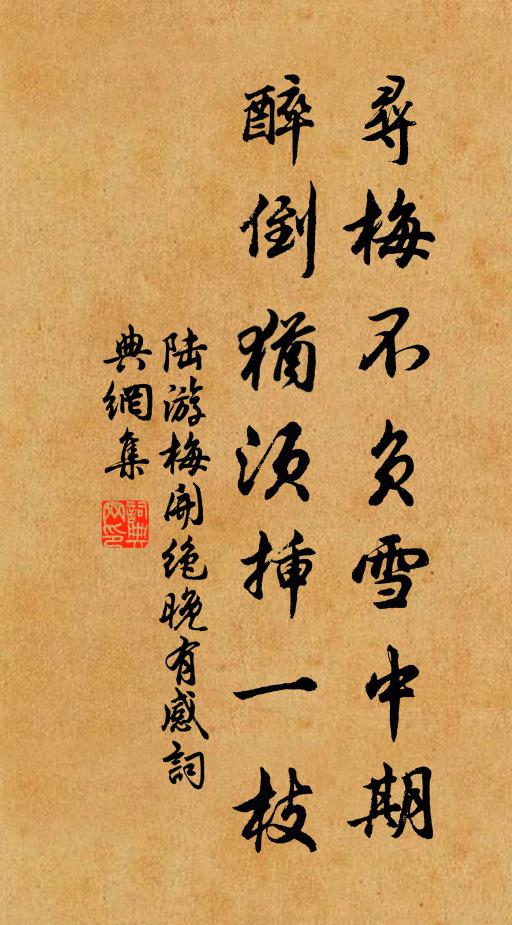 尋梅不負雪中期
醉倒猶須插一枝
陆游梅開绝晚有感詞
典網集
詞典
网印